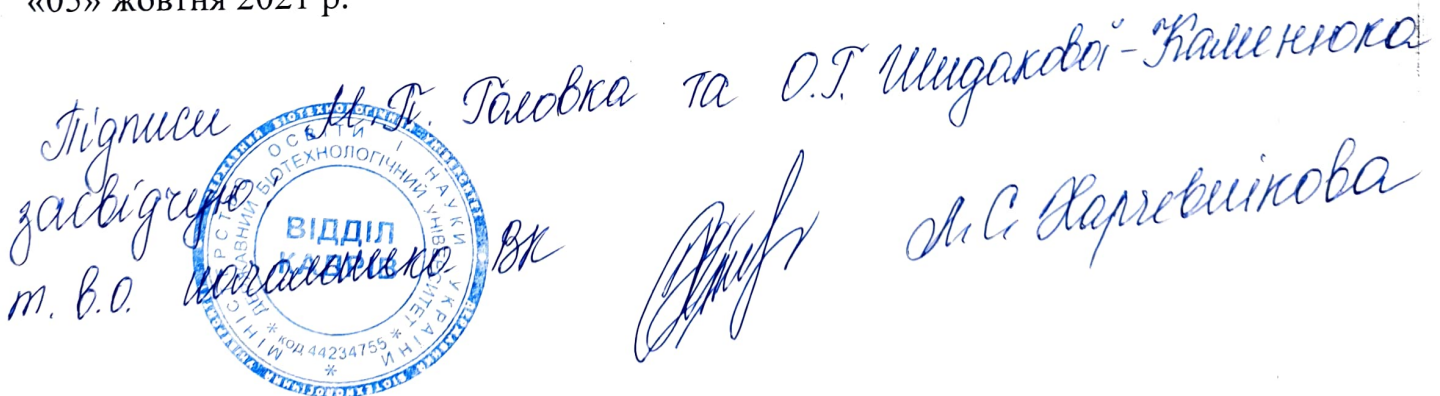 «05» жовтня 2021 р.
Підписи М.П. Головка та О.Г. Шидакової-Каменюка
засвідчую:
т. в.о. начальника ВК Л.С. Харчевнікова
ДЕРЖАВНИЙ БІОТЕХНОЛОГІЧНИЙ УНІВЕРСИТЕТ
МІНІСТЕРСТВО ОСВІТИ І НАУКИ УКРАЇНИ
ДЕРЖАВНИЙ БІОТЕХНОЛОГІЧНИЙ УНІВЕРСИТЕТ
ВІДДІЛ
КАДРІВ
* код 44234755 *